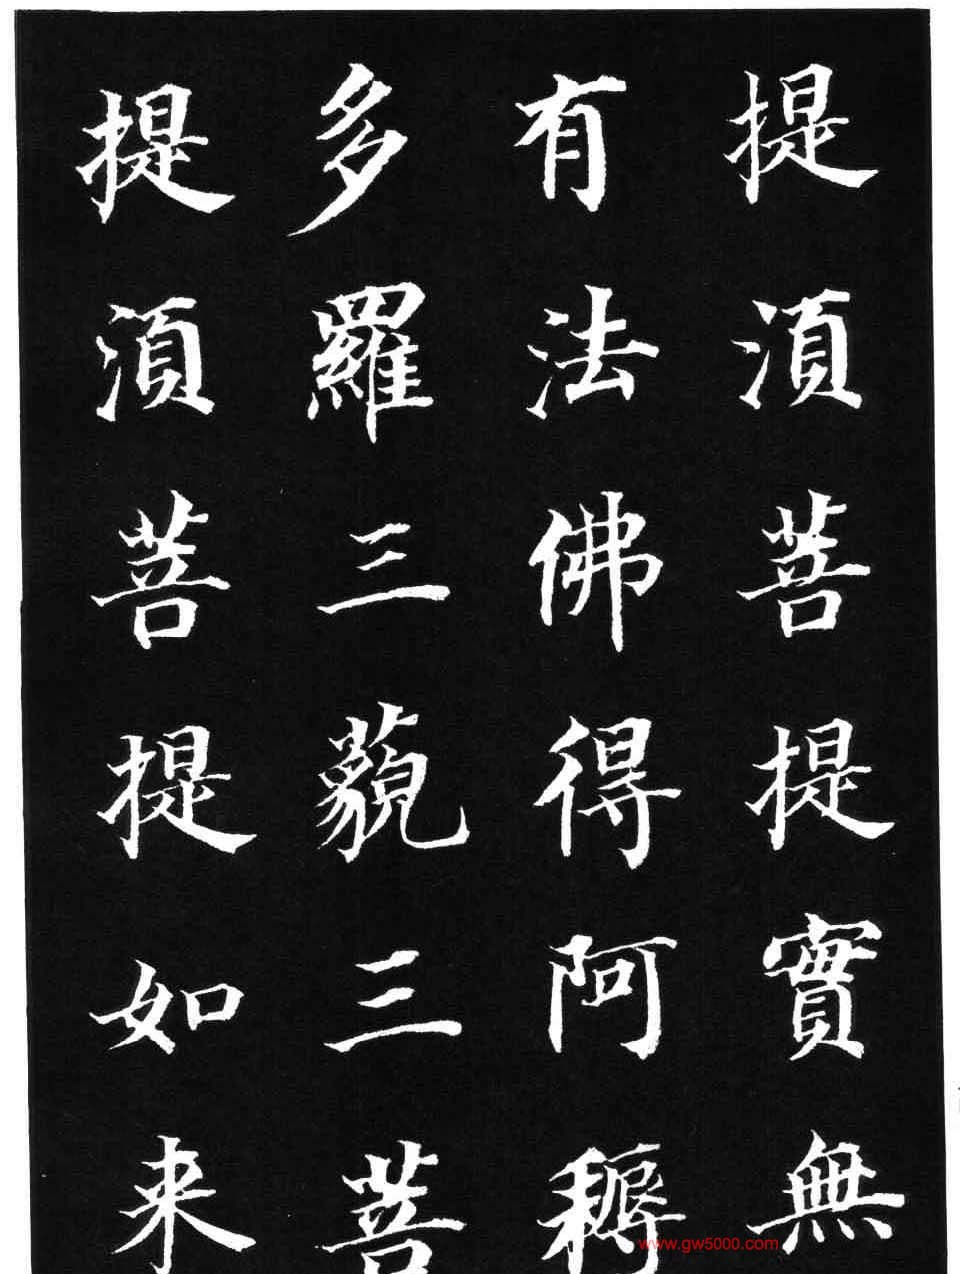 提須菩提實無
有法佛得阿耨
多羅三藐三菩
提須菩提如来
www.gw5000.com